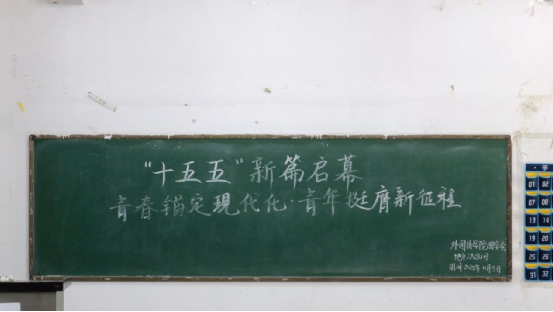 “十五五”新篇启幕
青春锚定现代化·青年挺膺新征程
外国语学院团学会
地点:
时间:2025年11月5日
01 02
07 08
13 14
19 20
25 26
31 32